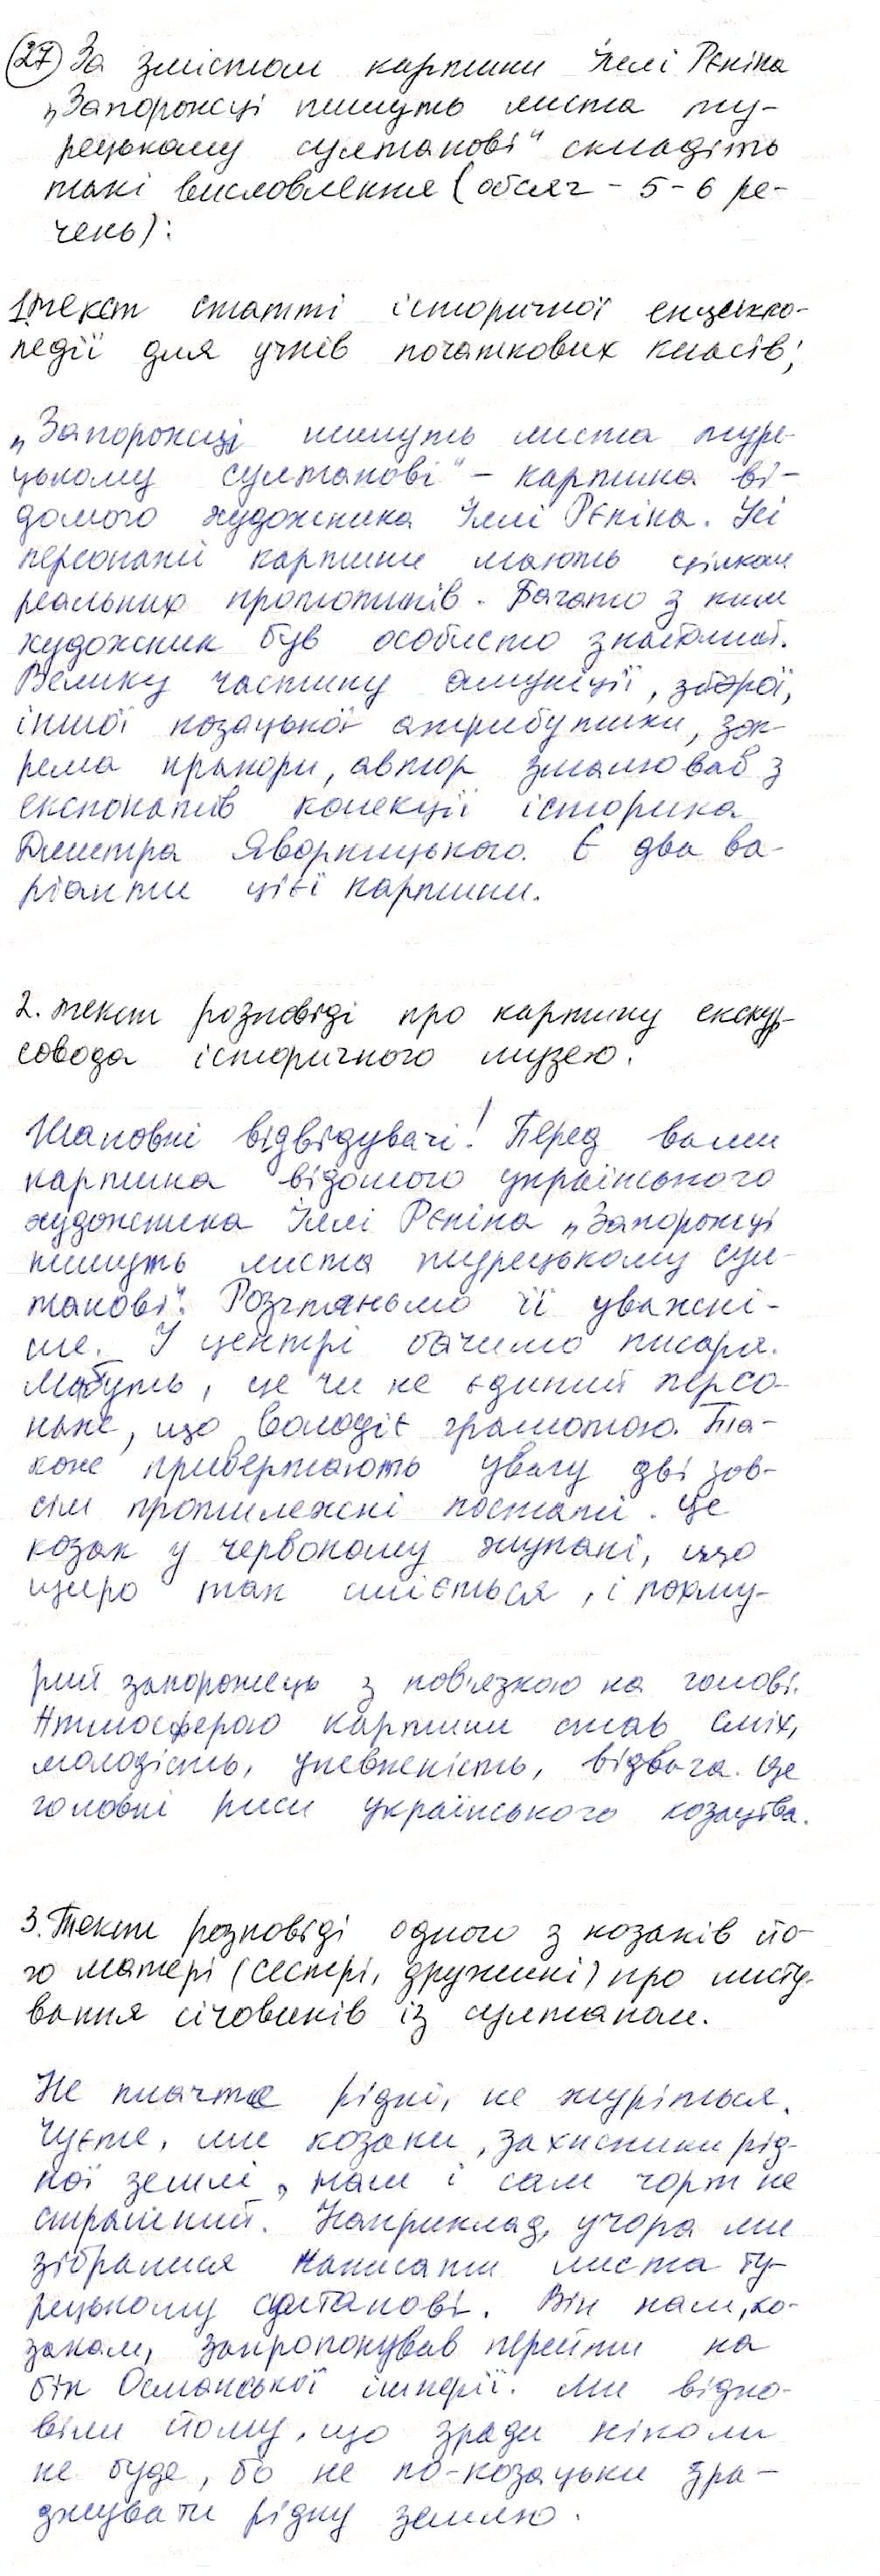 27 За змістом картини Іллі Рєпіна
„Запорожці пишуть листа ту-
рецькому султанові" складіть
такі висловлення (обсяг - 5-6 ре-
чень):
1. текст статті історичної енцикло-
педії для учнів початкових класів;
„Запорожці пишуть листа туре-
цькому султанові" – картина ві-
домого художника Іллі Рєпіна. Усі
персонажі картини мають цілком
реальних прототипів. Багато з ким
художник був особисто знайомий.
Велику частину амуніції, зброї,
іншої козацької атрибутики, зок-
рема прапори, автор змалював з
експонатів колекції історика
Дмитра Яворницького. Є два ва-
ріанти цієї картини.
2. текст розповіді про картину екскур-
совода історичного музею.
Шановні відвідувачі! Перед вами
картина відомого українського
художника Іллі Рєпіна „Запорожці
пишуть листа турецькому сул-
танові". Розгляньмо її уважні-
ше. У центрі бачимо писаря.
Мабуть, це чи не єдиний персо-
наж, що володіє грамотою. Та-
кож привертають увагу дві зов-
сім протилежні постаті. Це
козак у червоному жупані, що
щиро так сміється, і похму-
рий запорожець з пов'язкою на голові.
Атмосферою картини став сміх,
молодість, упевненість, відвага. Це
головні риси українського козацтва.
3. Текст розповіді одного з козаків йо-
го матері (сестрі, дружині) про листу-
вання січовиків із султаном.
Не плачте рідні, не журіться.
Чуєте, ми козаки, захисники рід-
ної землі, нам і сам чорт не
страшний. Наприклад, учора ми
зібралися написати листа ту-
рецькому султанові. Він нам, ко-
закам, запропонував перейти на
бік Османської імперії. Ми відпо-
віли йому, що зради ніколи
не буде, бо не по-козацьки зра-
джувати рідну землю.